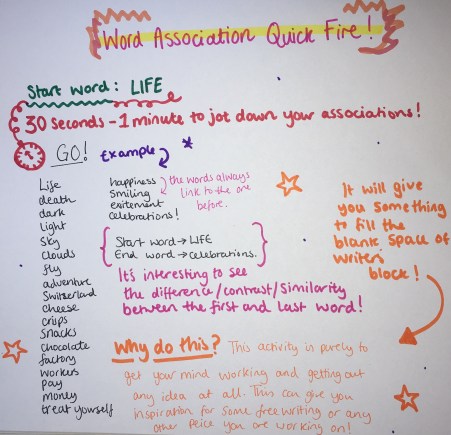 Word Association Quick Fire!
Start word: LIFE
30 seconds - 1 minute to jot down your associations!
GO! Example
Life
death
dark
light
Sky
clouds
fly
adventure
Switzerland
cheese
crisps
snacks
chocolate
factory
workers
pay
money
treat yourself
happiness
Smiling
exitement
celebrations!
the words always
link to the one
before.
Start word → LIFE
End word → celebrations.
It's interesting to see
the difference/contrast/similarity
between the first and last word!
It will give
you something
to fill the
blank space of
writers
block!
Why do this? This activity is purely to
get your mind working and getting out
any idea at all. This can give you
inspiration for some free writing or any
other peice you are working on!